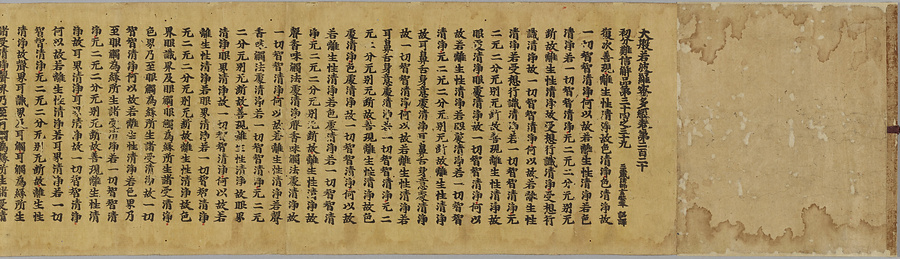 大般若波羅蜜多經卷第二百二十
初分難信解品第三十四之三十九 三藏法師玄奘奉 詔譯
復次善現離生性清淨故色清淨色清淨故
一切智智清淨何以故若離生性清淨若色
清淨若一切智智清淨无二无二分无別无
斷故離生性清淨故受想行識清淨受想行
識清淨故一切智智清淨何以故若離生性
清淨若受想行識清淨若一切智智清淨无
二无二分无別无斷故善現離生性清淨故
眼處清淨眼處清淨故一切智智清淨何以
故若離生性清淨若眼處清淨若一切智智
清淨无二无二分无別无斷故離生性清淨
故耳鼻舌身意處清淨耳鼻舌身意處清淨
故一切智智清淨何以故若離生性清淨若
耳鼻舌身意處清淨若一切智智清淨无二
无二分无別无斷故善現離生性清淨故色
處清淨色處清淨故一切智智清淨何以故
若離生性清淨若色處清淨若一切智智清
淨无二无二分无別无斷故離生性清淨故
聲香味觸法處清淨聲香味觸法處清淨故
一切智智清淨何以故若離生性清淨若聲
香味觸法處清淨若一切智智清淨无二无
二分无別无斷故善現離生性清淨故眼界
清淨眼界清淨故一切智智清淨何以故若
離生性清淨若眼界清淨若一切智智清淨
无二无二分无別无斷故離生性清淨故色
界眼識界及眼觸眼觸為緣所生諸受清淨
色界乃至眼觸為緣所生諸受清淨故一切
智智清淨何以故若離生性清淨若色界乃
至眼觸為緣所生諸受清淨若一切智智清
淨无二无二分无別无斷故善現離生性清
淨故耳界清淨耳界清淨故一切智智清淨
何以故若離生性清淨若耳界清淨若一切
智智清淨无二无二分无別无斷故離生性
清淨故聲界耳識界及耳觸耳觸為緣所生
諸受清淨聲界乃至耳觸為緣所生諸受清